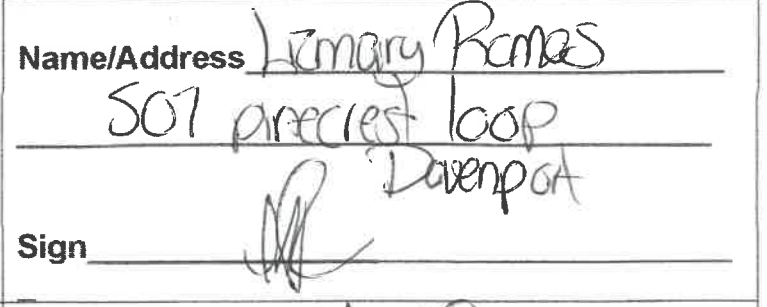 Name/Address Lizmary Ramos
507 pinecrest loop
Davenport
Sign